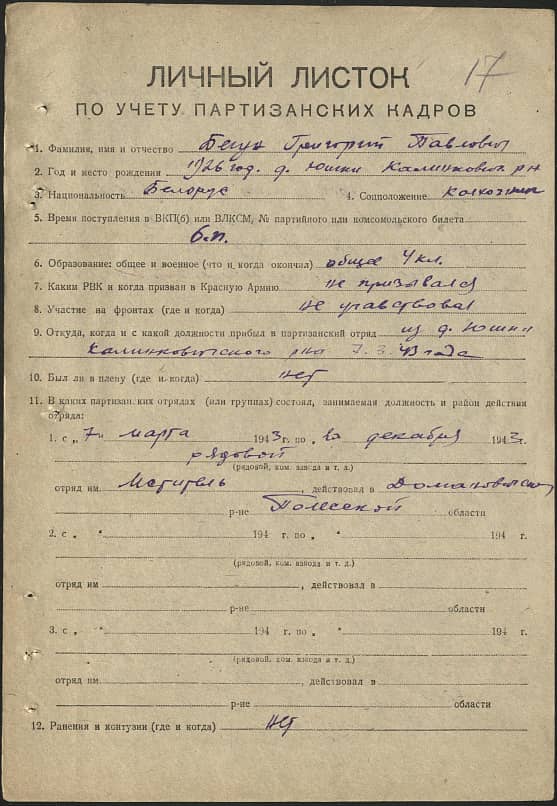 17
ЛИЧНЫЙ ЛИСТОК
ПО УЧЕТУ ПАРТИЗАНСКИХ КАДРОВ
1. Фамилия, имя и отчество Григорий Павлович
2. Год и место рождения 1926 год. д. Юшки Калинкович. р-н
3. Национальность Белорус 4. Соцположение колхозник
5. Время поступления в ВКП(б) или ВЛКСМ, № партийного или комсомольского билета
б.п.
6. Образование: общее и военное (что и когда окончил) общее 4 кл.
7. Каким РВК и когда призван в Красную Армию не призывался
8. Участие на фронтах (где и когда) не участвовал
9. Откуда, когда и с какой должности прибыл в партизанский отряд из д. Юшки
Калинковичского р-на 7.3.43 года
10. Был ли в плену (где и когда) нет
11. В каких партизанских отрядах (или группах) состоял, занимаемая должность и район действия
отряда:
1. с „7" марта 1943 г. по „10 декабря 1943 г.
рядовой
(рядовой, ком. взвода и т. д.)
отряд им Мститель, действовал в Домановичском
р-не Полесской области
2. с „ " 194 г. по „ " 194 г.
(рядовой, ком. взвода и т. д.)
отряд им , действовал в
р-не области
3. с „ " 194 г. по „ " 194 г.
(рядовой, ком. взвода и т. д.)
отряд им , действовал в
р-не области
12. Ранения и контузии (где и когда) нет